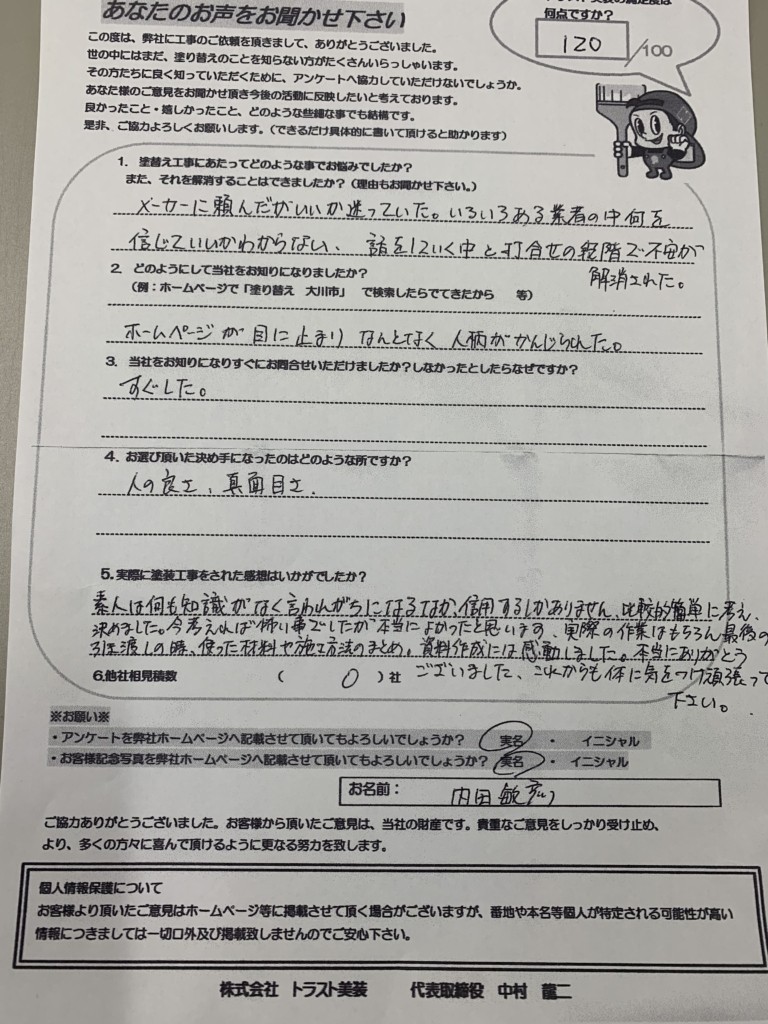 あなたのお声をお聞かせ下さい
何点ですか？
120 /100
この度は、弊社に工事のご依頼を頂きまして、ありがとうございました。
世の中にはまだ、塗り替えのことを知らない方がたくさんいらっしゃいます。
その方たちに良く知っていただくために、アンケートへ協力していただけないでしょうか。
あなた様のご意見をお聞かせ頂き今後の活動に反映したいと考えております。
良かったこと・嬉しかったこと、どのような些細な事でも結構です。
是非、ご協力よろしくお願いします。（できるだけ具体的に書いて頂けると助かります）
1. 塗替え工事にあたってどのような事でお悩みでしたか？
また、それを解消することはできましたか？（理由もお聞かせ下さい。）
メーカーに頼んだがいいか迷っていた。いろいろある業者の中何を
信じていいかわからない、話を聞いていく中と打合せの段階で不安が
解消された。
2. どのようにして当社をお知りになりましたか？
（例：ホームページで「塗り替え 大川市」で検索したらでてきたから 等）
ホームページが目に止まりなんとなく人柄がかんじられた。
3. 当社をお知りになりすぐにお問合せいただけましたか？しなかったとしたらなぜですか？
すぐした。
4. お選び頂いた決め手になったのはどのような所ですか？
人の良さ、真面目さ.
5.実際に塗装工事をされた感想はいかがでしたか？
素人は何も知識がなく言われがちになるなか、信用するしかありません、比較的簡単に考え、
決めました。今考えれば怖い事でしたが本当によかったと思います、実際の作業はもちろん最後の
引き渡しの時、使った材料や施工方法のまとめ。資料作成には感動しました。本当にありがとう
ございました、これからも体に気をつけ頑張って
下さい。
6.他社相見積数 （ 0 ）社
※お願い※
・アンケートを弊社ホームページへ記載させて頂いてもよろしいでしょうか？ 実名 ・ イニシャル
・お客様記念写真を弊社ホームページへ記載させて頂いてもよろしいでしょうか？ 実名 ・ イニシャル
お名前： 内田 敏彦
ご協力ありがとうございました。お客様から頂いたご意見は、当社の財産です。貴重なご意見をしっかり受け止め、
より、多くの方々に喜んで頂けるように更なる努力を致します。
個人情報保護について
お客様より頂いたご意見はホームページ等に掲載させて頂く場合がございますが、番地や本名等個人が特定される可能性が高い
情報につきましては一切口外及び掲載致しませんのでご安心下さい。
株式会社 トラスト美装 代表取締役 中村 龍二